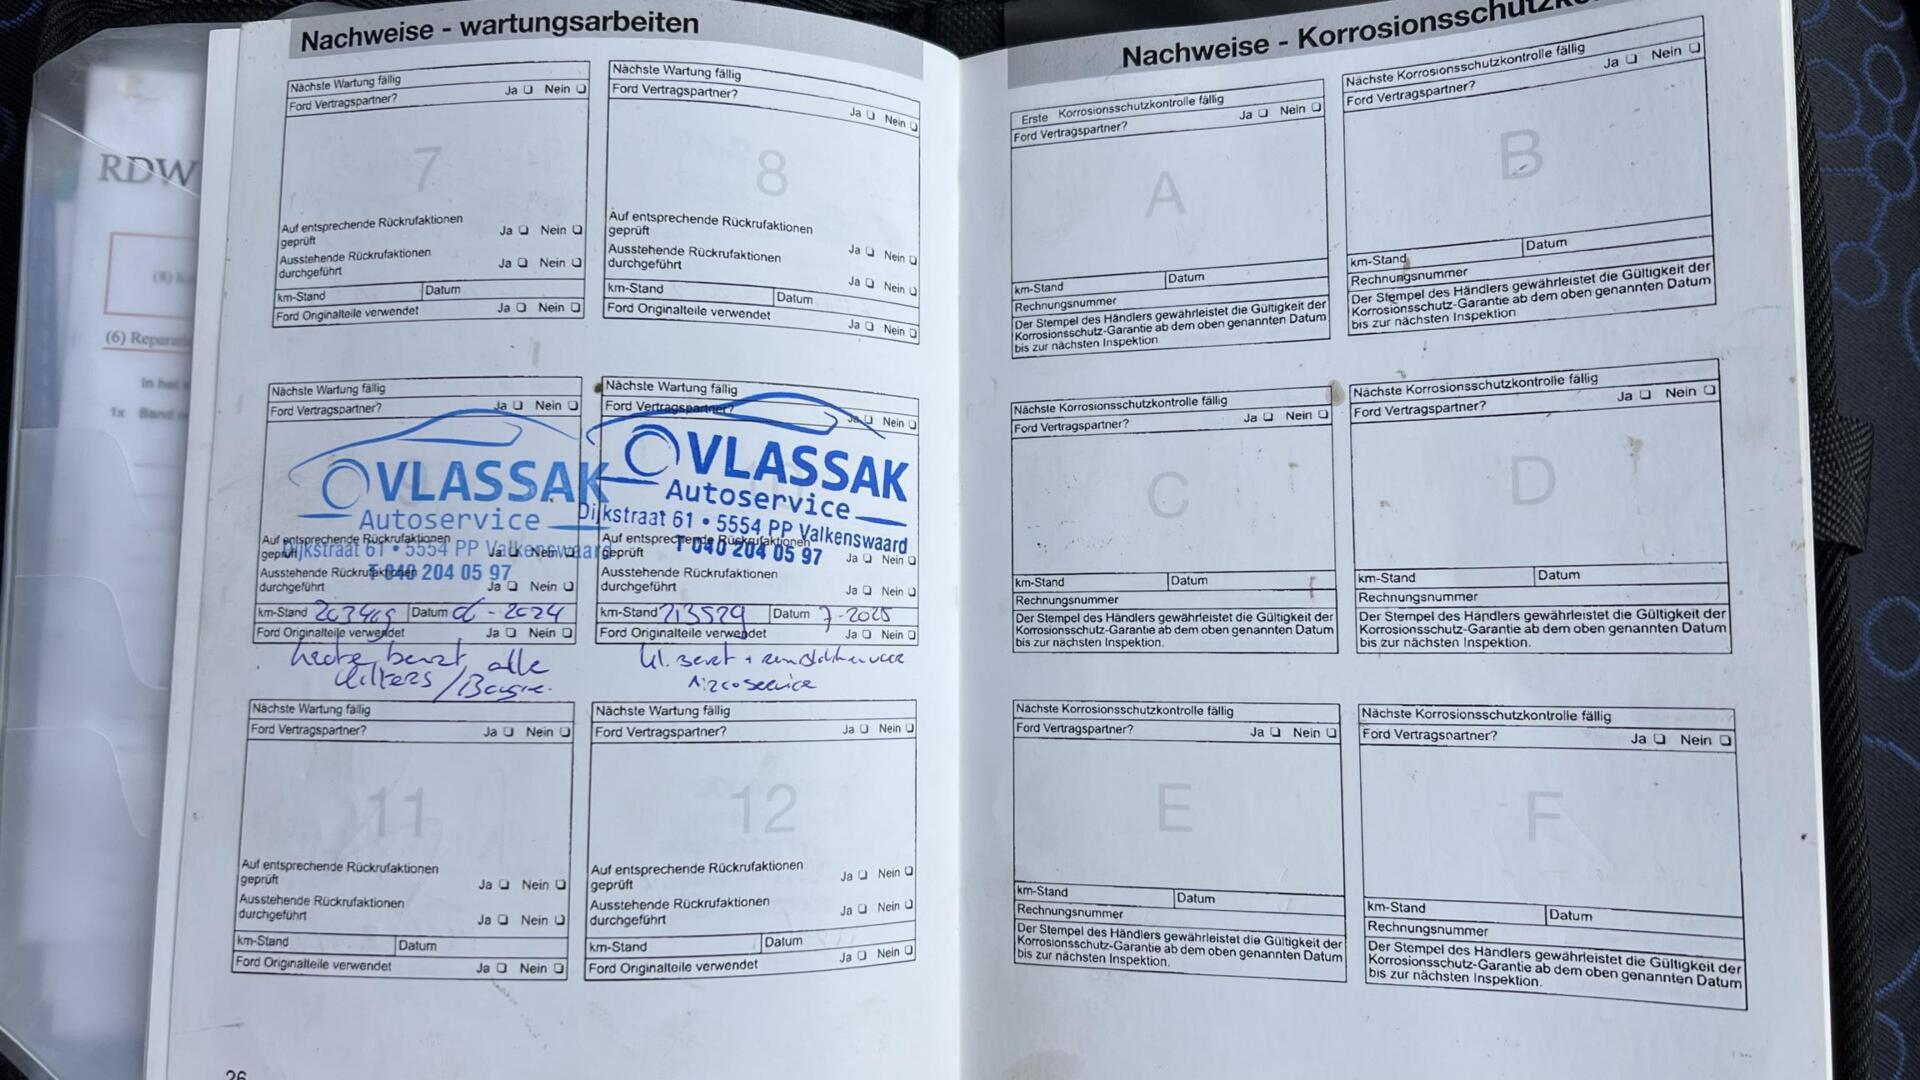 Nachweise - wartungsarbeiten
Nächste Wartung fällig
Ford Vertragspartner? Ja Nein
7
Auf entsprechende Rückrufaktionen
geprüft Ja Nein
Ausstehende Rückrufaktionen
durchgeführt Ja Nein
km-Stand Datum
Ford Originalteile verwendet Ja Nein
Nächste Wartung fällig
Ford Vertragspartner?
Ja Nein
8
Auf entsprechende Rückrufaktionen
geprüft Ja Nein
Ausstehende Rückrufaktionen
durchgeführt Ja Nein
km-Stand Datum
Ford Originalteile verwendet Ja Nein
Nächste Wartung fällig
Ford Vertragspartner? Ja Nein
VLASSAK
Autoservice
Dijkstraat 61 • 5554 PP Valkenswaard
T 040 204 05 97
Auf entsprechende Rückrufaktionen
geprüft Ja Nein
Ausstehende Rückrufaktionen
durchgeführt Ja Nein
km-Stand Datum 2024
Ford Originalteile verwendet Ja Nein
alle
Nächste Wartung fällig
Ford Vertragspartner? Ja Nein
VLASSAK
Autoservice
Dijkstraat 61 • 5554 PP Valkenswaard
T 040 204 05 97
Auf entsprechende Rückrufaktionen
geprüft Ja Nein
Ausstehende Rückrufaktionen
durchgeführt Ja Nein
km-Stand 213529 Datum 7-2025
Ford Originalteile verwendet Ja Nein
Kl. beurt +
Aircoservice
Nächste Wartung fällig
Ford Vertragspartner? Ja Nein
11
Auf entsprechende Rückrufaktionen
geprüft Ja Nein
Ausstehende Rückrufaktionen
durchgeführt Ja Nein
km-Stand Datum
Ford Originalteile verwendet Ja Nein
Nächste Wartung fällig
Ford Vertragspartner? Ja Nein
12
Auf entsprechende Rückrufaktionen
geprüft Ja Nein
Ausstehende Rückrufaktionen
durchgeführt Ja Nein
km-Stand Datum
Ford Originalteile verwendet Ja Nein
26
Nachweise - Korrosionsschutzko
Erste Korrosionsschutzkontrolle fällig
Ford Vertragspartner? Ja Nein
A
km-Stand Datum
Rechnungsnummer
Der Stempel des Händlers gewährleistet die Gültigkeit der
Korrosionsschutz-Garantie ab dem oben genannten Datum
bis zur nächsten Inspektion
Nächste Korrosionsschutzkontrolle fällig
Ford Vertragspartner? Ja Nein
B
km-Stand Datum
Rechnungsnummer
Der Stempel des Händlers gewährleistet die Gültigkeit der
Korrosionsschutz-Garantie ab dem oben genannten Datum
bis zur nächsten Inspektion
Nächste Korrosionsschutzkontrolle fällig
Ford Vertragspartner? Ja Nein
C
km-Stand Datum
Rechnungsnummer
Der Stempel des Händlers gewährleistet die Gültigkeit der
Korrosionsschutz-Garantie ab dem oben genannten Datum
bis zur nächsten Inspektion.
Nächste Korrosionsschutzkontrolle fällig
Ford Vertragspartner? Ja Nein
D
km-Stand Datum
Rechnungsnummer
Der Stempel des Händlers gewährleistet die Gültigkeit der
Korrosionsschutz-Garantie ab dem oben genannten Datum
bis zur nächsten Inspektion.
Nächste Korrosionsschutzkontrolle fällig
Ford Vertragspartner? Ja Nein
E
km-Stand Datum
Rechnungsnummer
Der Stempel des Händlers gewährleistet die Gültigkeit der
Korrosionsschutz-Garantie ab dem oben genannten Datum
bis zur nächsten Inspektion.
Nächste Korrosionsschutzkontrolle fällig
Ford Vertragspartner? Ja Nein
F
km-Stand Datum
Rechnungsnummer
Der Stempel des Händlers gewährleistet die Gültigkeit der
Korrosionsschutz-Garantie ab dem oben genannten Datum
bis zur nächsten Inspektion.
RDW
(6)
1x